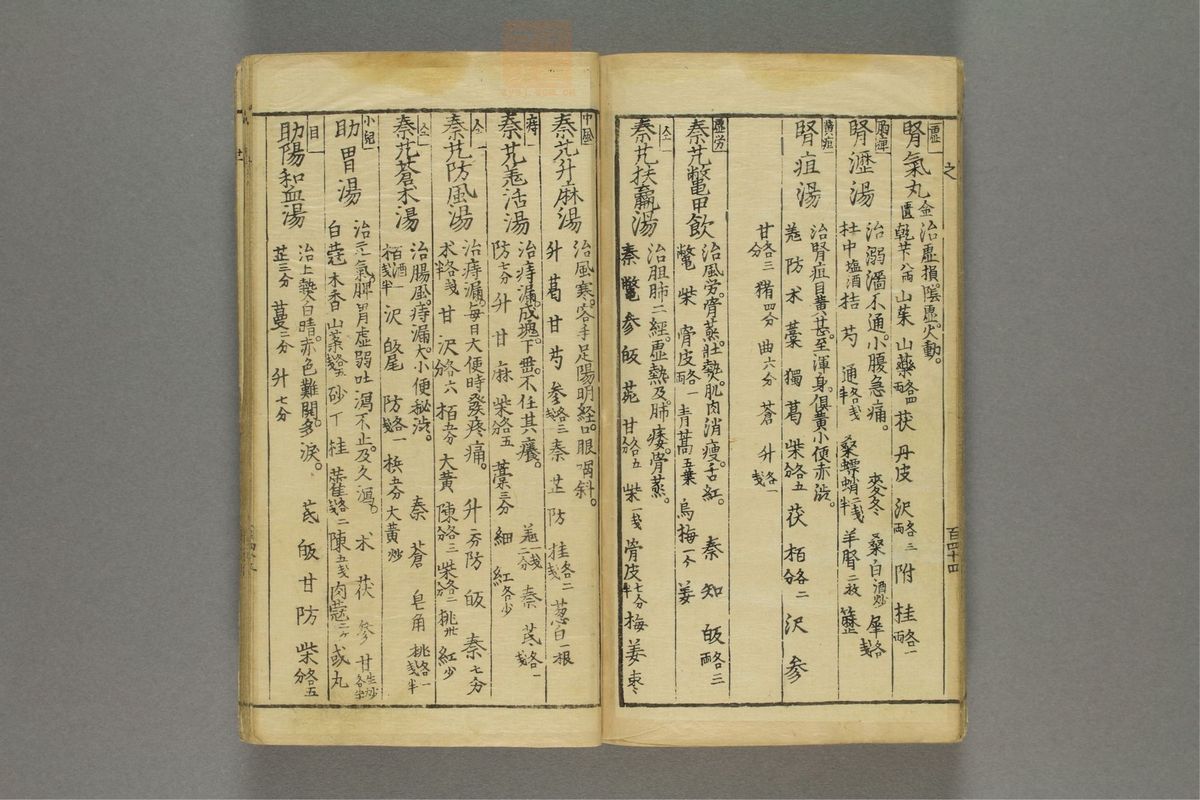 之
虛
腎氣丸 金匱
治虛損。陰虛。火動。
乾芐八両 山茱 山藥各四両 茯 丹皮 沢各三両 附 桂各一両
腎瀝湯
治溺濇不通。小腹急痛。 麥冬 桑白酒炒 犀各戔
杜中塩酒 桔 芍 通各戔半 桑螵蛸二戔半 羊腎二枚
黄疸
腎疸湯
治腎疸目黄甚。至渾身俱黄小便赤渋。
羗 防 术 藁 獨 葛 柴各五分 茯 栢各二分 沢 参
甘各三分 猪四分 曲六分 蒼 升各一戔
百四十四
虛労
秦艽鱉甲飲
治風労。骨蒸。壯熱。肌肉消瘦。舌紅。 秦 知 皈各三両
鱉 柴 骨皮各一両 青蒿五葉 烏梅一ケ 姜
仝
秦艽扶羸湯
治胆肺二經。虛熱及肺痿。骨蒸。
秦 鱉 参 皈 苑 甘各五分 柴一戔 骨皮七分半 梅 姜 枣
中風
秦艽升麻湯
治風寒。客手足陽明經。口眼喎斜。
升 葛 甘 芍 参各三戔 秦 芷 防 桂各二戔 葱白一根
痔
秦艽羗活湯
治痔漏。成塊。下垂。不任其癢。 羗一戔二分 秦 芪各一戔
防七分 升 甘 麻 柴各五分 藁三分 細 紅各少
仝
秦艽防風湯
治痔漏。每日大便時發疼痛。 升二分 防 皈 秦七分
术各戔半 甘 沢各六分 栢五分 大黄 陳各三分 柴各二分 桃卅 紅少
仝
秦艽蒼术湯
治腸風。痔漏大小便秘渋。 秦 蒼 皂角 桃各一戔半
栢酒一戔半 沢 皈尾 防各一戔 梹五分 大黄炒
小兒
助胃湯
治冷氣脾胃虛弱吐瀉不止。及久瀉。 术 茯 参 甘
白蔻 木香 山藥各五戔 砂 丁 桂 藿各二戔 陳五戔 肉蔻二ケ 或丸
目
助陽和血湯
治上熱。白晴。赤色難開。多淚。 芪 皈 甘 防 柴各五分
芷三分 蔓二分 升七分